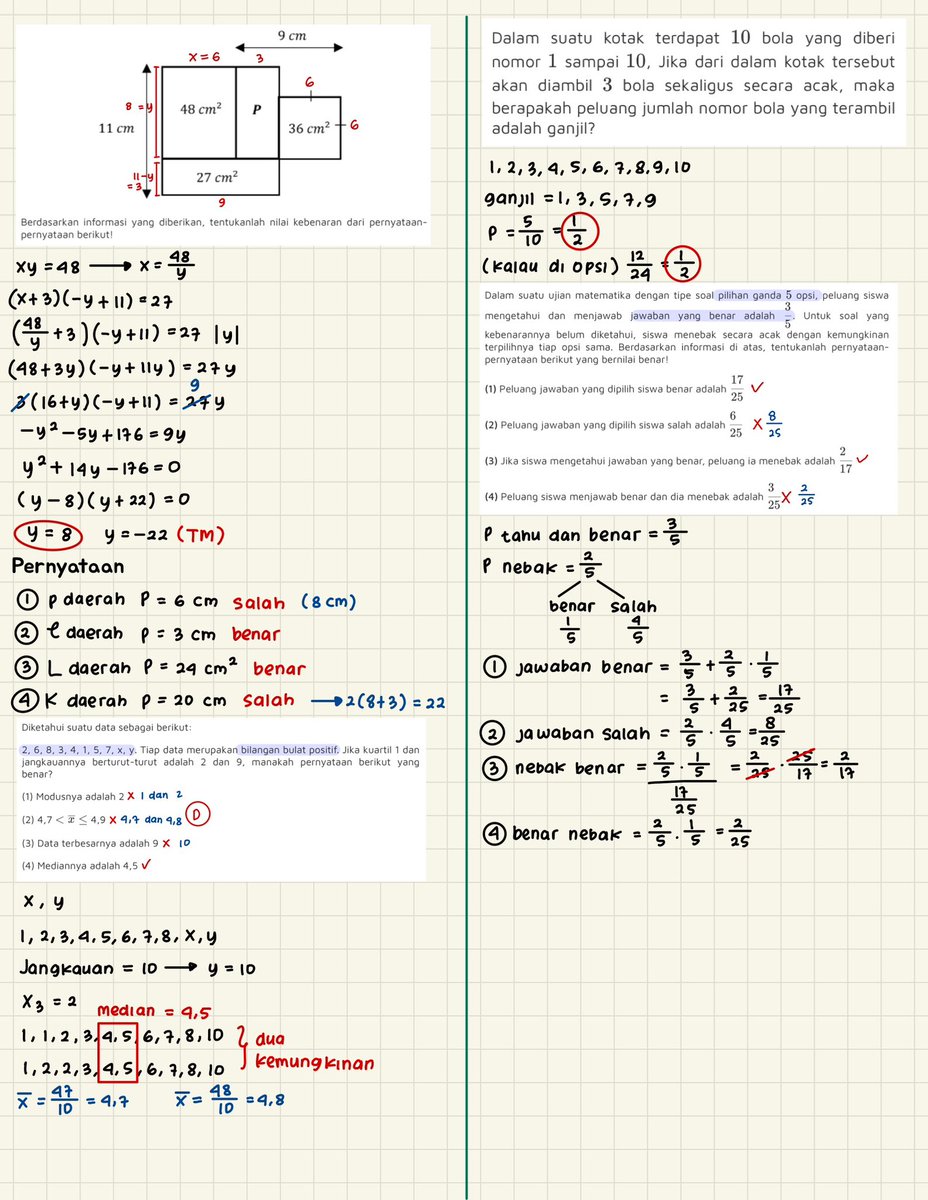 9 cm
x = 6
3
8 = y
48 cm²
P
6
11 cm
36 cm²
6
11-y
= 3
27 cm²
9
Berdasarkan informasi yang diberikan, tentukanlah nilai kebenaran dari pernyataan-
pernyataan berikut!
xy = 48 → x = 48/y
(x+3)(-y+11) = 27
(48/y + 3)(-y+11) = 27 |y|
(48+3y)(-y+11y) = 27y
3(16+y)(-y+11) = 27y
9
-y² -5y+176 = 9y
y² + 14y - 176 = 0
(y-8)(y+22) = 0
y = 8 y = -22 (TM)
Pernyataan
① p daerah P = 6 cm salah (8 cm)
② l daerah P = 3 cm benar
③ L daerah P = 24 cm² benar
④ K daerah P = 20 cm salah → 2(8+3) = 22
Diketahui suatu data sebagai berikut:
2, 6, 8, 3, 4, 1, 5, 7, x, y. Tiap data merupakan bilangan bulat positif. Jika kuartil 1 dan
jangkauannya berturut-turut adalah 2 dan 9, manakah pernyataan berikut yang
benar?
(1) Modusnya adalah 2 X 1 dan 2
(2) 4,7 < x̅ ≤ 4,9 X 4,7 dan 4,8 D
(3) Data terbesarnya adalah 9 X 10
(4) Mediannya adalah 4,5 ✓
x, y
1, 2, 3, 4, 5, 6, 7, 8, x, y
Jangkauan = 10 → y = 10
X₃ = 2
median = 4,5
1, 1, 2, 3, 4, 5, 6, 7, 8, 10
1, 2, 2, 3, 4, 5, 6, 7, 8, 10
dua
kemungkinan
x̅ = 47/10 = 4,7 x̅ = 48/10 = 4,8
Dalam suatu kotak terdapat 10 bola yang diberi
nomor 1 sampai 10, Jika dari dalam kotak tersebut
akan diambil 3 bola sekaligus secara acak, maka
berapakah peluang jumlah nomor bola yang terambil
adalah ganjil?
1, 2, 3, 4, 5, 6, 7, 8, 9, 10
ganjil = 1, 3, 5, 7, 9
P = 5/10 = 1/2
(kalau di opsi) 12/24 = 1/2
Dalam suatu ujian matematika dengan tipe soal pilihan ganda 5 opsi, peluang siswa
mengetahui dan menjawab jawaban yang benar adalah 3/5. Untuk soal yang
kebenarannya belum diketahui, siswa menebak secara acak dengan kemungkinan
terpilihnya tiap opsi sama. Berdasarkan informasi di atas, tentukanlah pernyataan-
pernyataan berikut yang bernilai benar!
(1) Peluang jawaban yang dipilih siswa benar adalah 17/25 ✓
(2) Peluang jawaban yang dipilih siswa salah adalah 6/25 X 8/25
(3) Jika siswa mengetahui jawaban yang benar, peluang ia menebak adalah 2/17 ✓
(4) Peluang siswa menjawab benar dan dia menebak adalah 3/25 X 2/25
P tahu dan benar = 3/5
P nebak = 2/5
benar salah
1/5 4/5
① jawaban benar = 3/5 + 2/5 · 1/5
= 3/5 + 2/25 = 17/25
② jawaban salah = 2/5 · 4/5 = 8/25
③ nebak benar = (2/5 · 1/5)/(17/25) = 2/25 · 25/17 = 2/17
④ benar nebak = 2/5 · 1/5 = 2/25